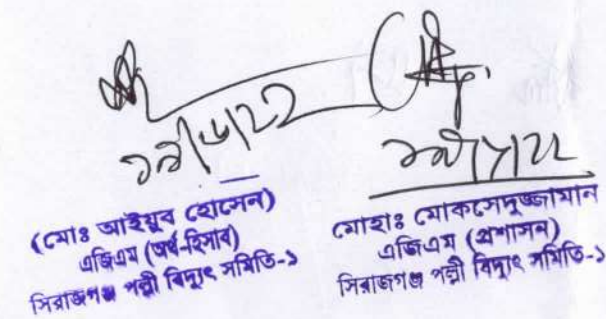 (মোঃ আইয়ুব হোসেন)
এজিএম (অর্থ-হিসাব)
সিরাজগঞ্জ পল্লী বিদ্যুৎ সমিতি-১
মোহাঃ মোকসেদুজ্জামান
এজিএম (প্রশাসন)
সিরাজগঞ্জ পল্লী বিদ্যুৎ সমিতি-১